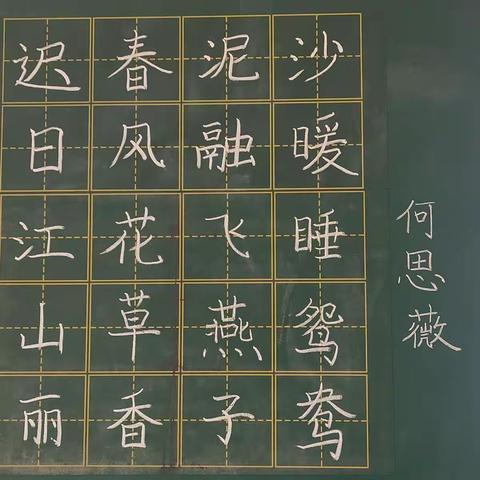 迟日江山丽
春风花草香
泥融飞燕子
沙暖睡鸳鸯
何思薇